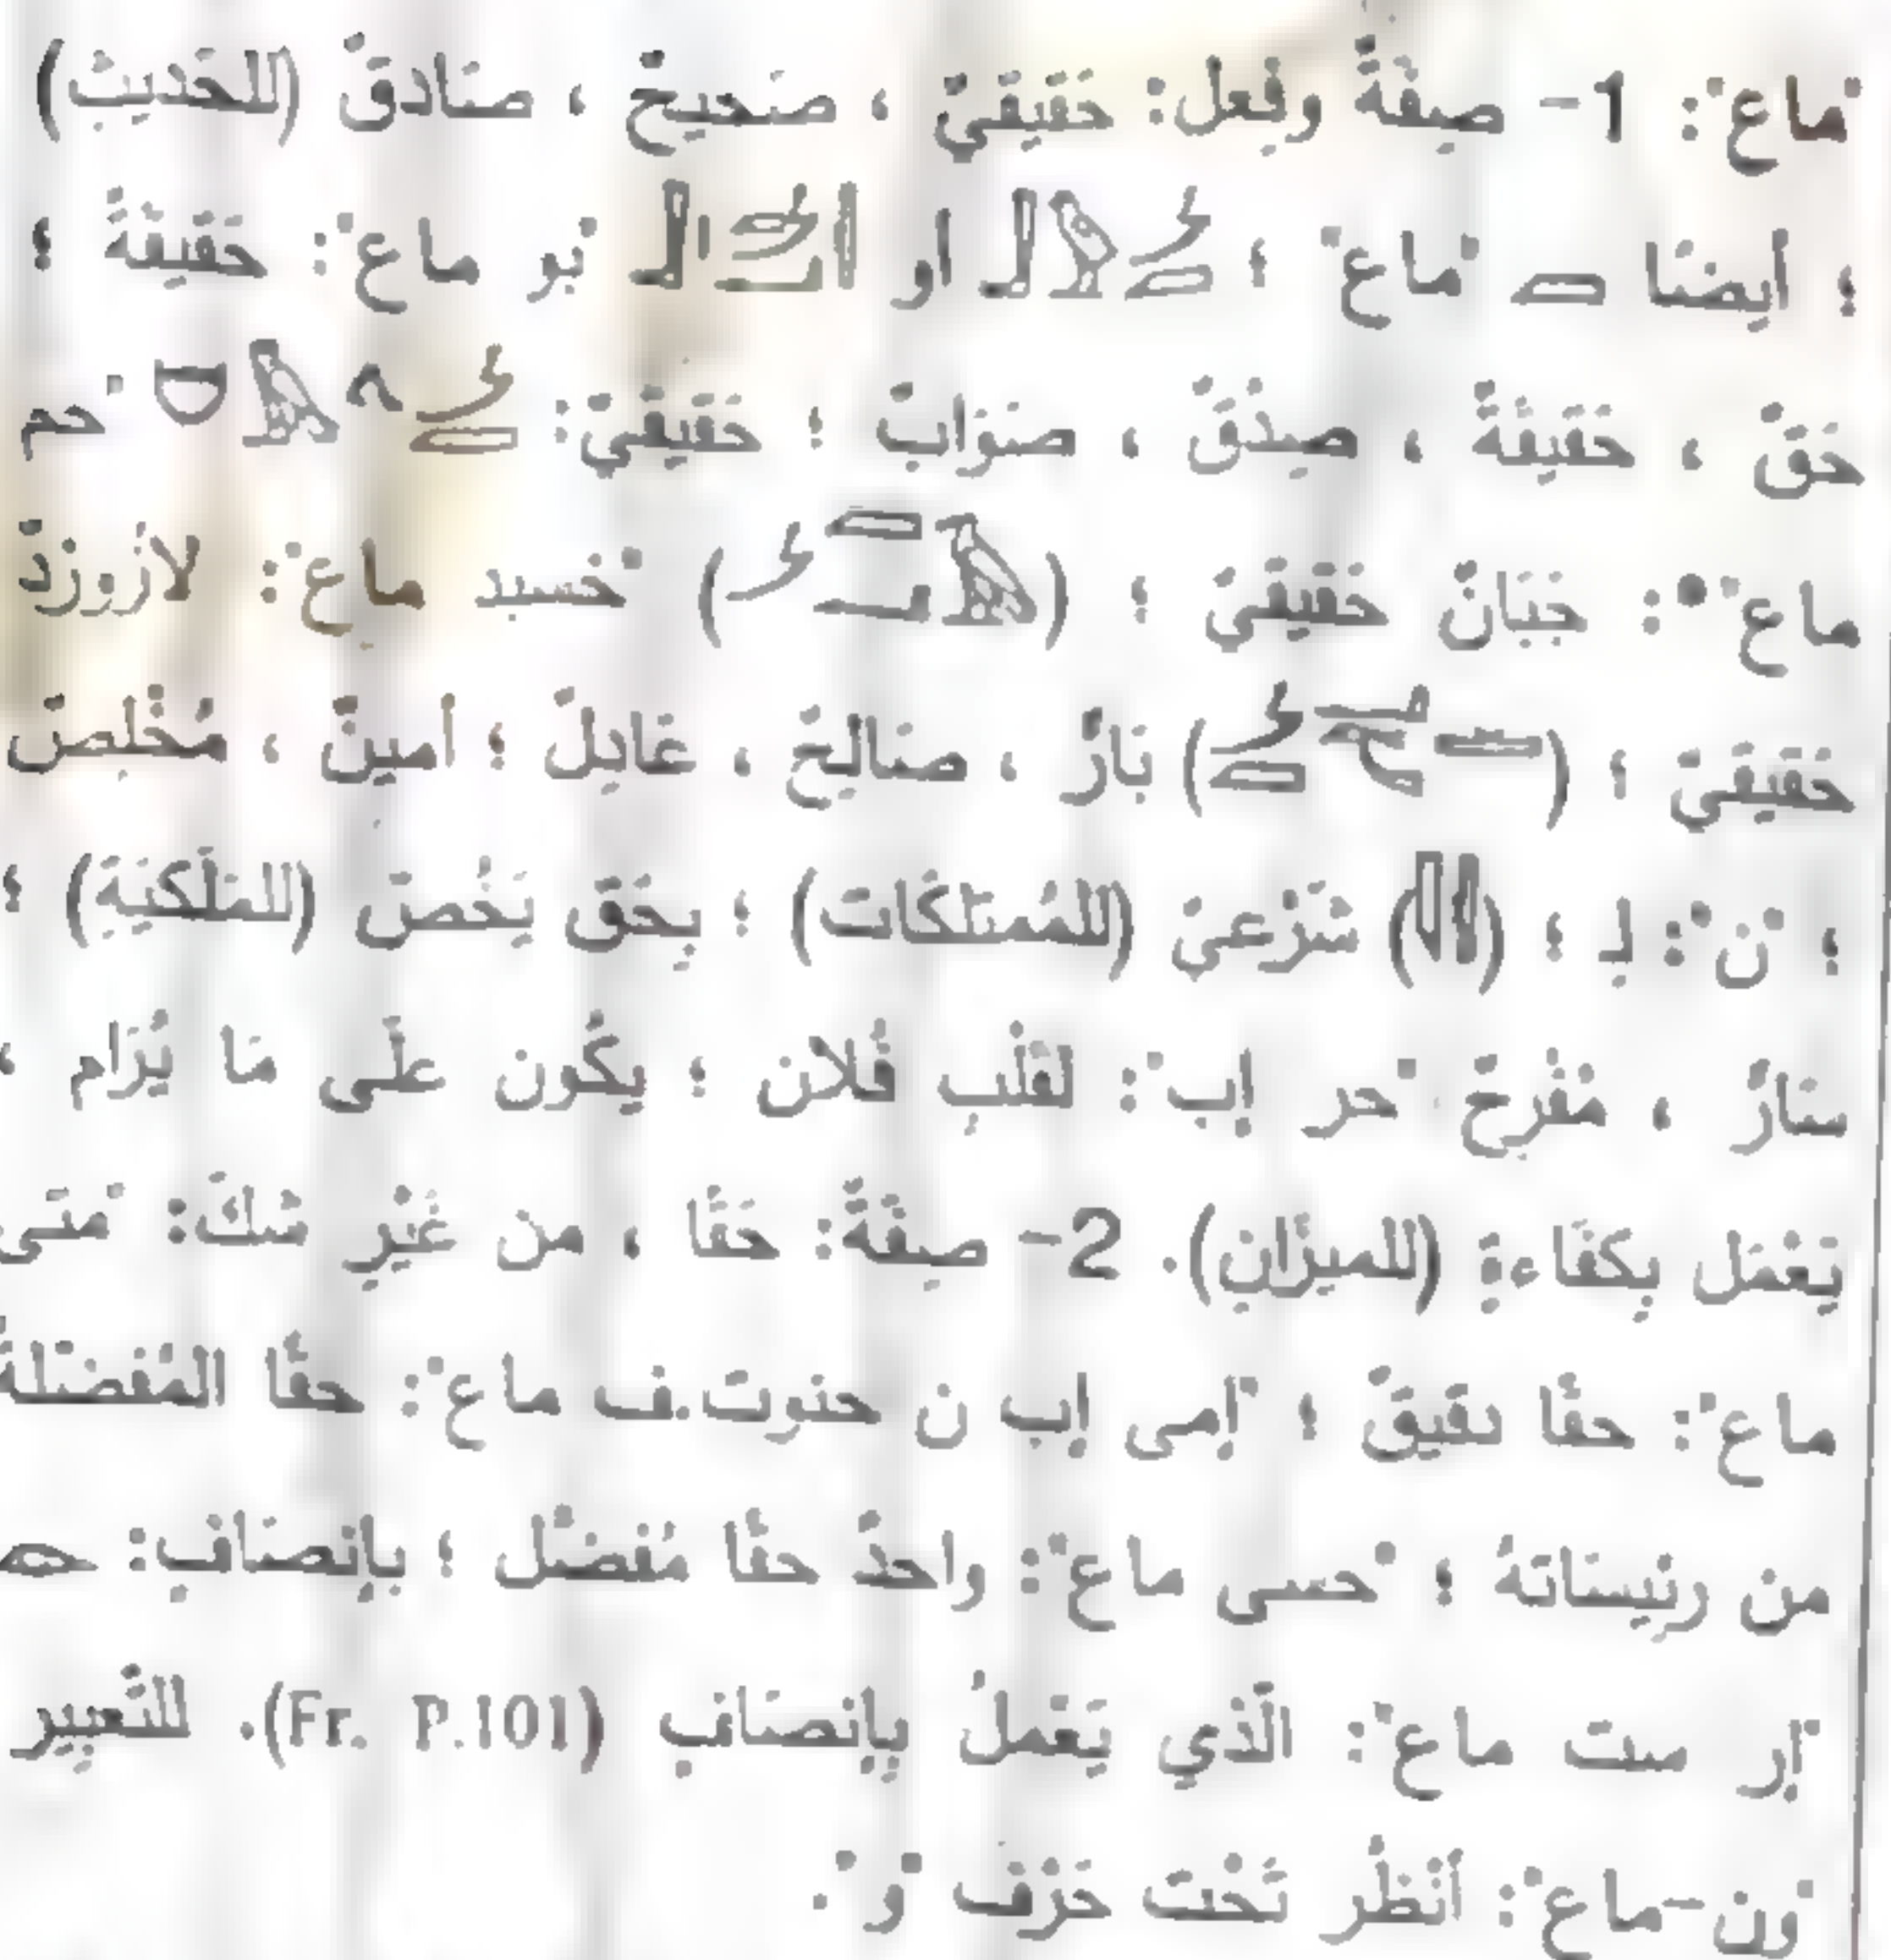 "ماع": 1- صِفَةٌ وفِعل: حَقيقيّ ، صَحيحٌ ، صَادقٌ (للحَديثِ)
؛ أيضًا "ماع" ؛ أو "بو ماع": حَقيقَةٌ ؛
حَقٌّ ، حَقيقَةٌ ، صِدْقٌ ، صَوَابٌ ؛ حَقيقيّ: "حم
ماع": جَبَانٌ حَقيقيّ ؛ () "خسبد ماع": لازُورْدٌ
حَقيقيّ ؛ () بَارٌّ ، صَالِحٌ ، عَادِلٌ ؛ أمينٌ ، مُخْلِصٌ
؛ "ن": لِـ ؛ () شَرْعيّ (للمُمتلكَات) ؛ بِحَق يَخُصّ (للمَلَكيَةِ) ؛
سَارٌّ ، مُفْرِحٌ "حر إب": لقَلْبِ فُلان ؛ يكُون علَى مَا يُرَام ،
يَعْمَل بِكفَاءةٍ (للميزَانِ). 2- صِفَةٌ: حَقًا ، من غَيْرِ شكَ: "متى
ماع": حقًا دقيقٌ ؛ "إمى إب ن حنوت.ف ماع": حقًا المُفضَلةُ
من رئيسَاتهُ ؛ "حسى ماع": واحدٌ حقًا مُفضَل ؛ بإنصَافٍ:
"إر ست ماع": الّذي يَعْملُ بإنصَافٍ (Fr. P.101). للتّعبير
"ون-ماع": أنْظُر تَحْتَ حَرْف "و".